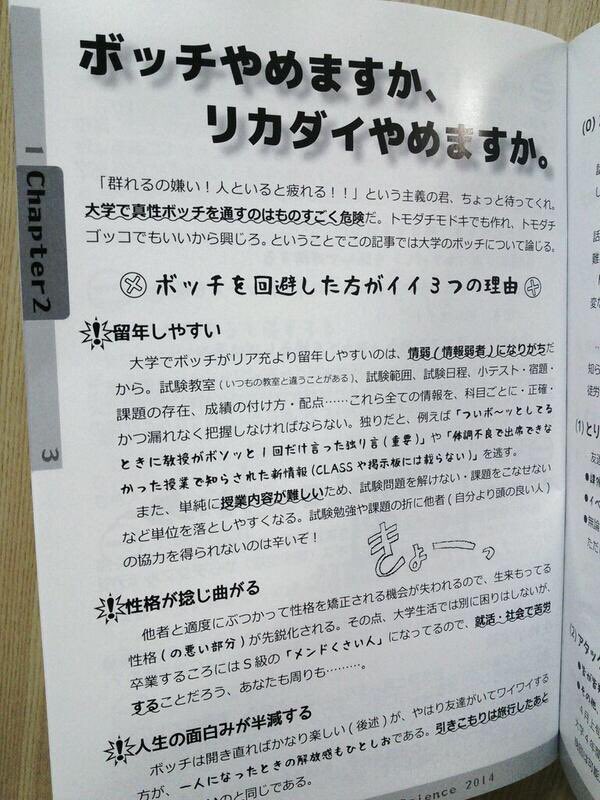 ボッチやめますか、
リカダイやめますか。
1 Chapter2
3
「群れるの嫌い！人といると疲れる！！」という主義の君、ちょっと待ってくれ。
大学で真性ボッチを通すのはものすごく危険だ。トモダチモドキでも作れ、トモダチ
ゴッコでもいいから興じろ。ということでこの記事では大学のボッチについて論じる。
ボッチを回避した方がイイ3つの理由
留年しやすい
大学でボッチがリア充より留年しやすいのは、情弱(情報弱者)になりがちだ
から。試験教室(いつもの教室と違うことがある)、試験範囲、試験日程、小テスト・宿題・
課題の存在、成績の付け方・配点……これら全ての情報を、科目ごとに・正確・
かつ漏れなく把握しなければならない。独りだと、例えば「ついボ～ッとしてる
ときに教授がボソッと1回だけ言った独り言(重要)」や「体調不良で出席できな
かった授業で知らされた新情報(CLASSや掲示板には載らない)」を逃す。
また、単純に授業内容が難しいため、試験問題を解けない・課題をこなせない
など単位を落としやすくなる。試験勉強や課題の折に他者(自分より頭の良い人)
の協力を得られないのは辛いぞ！
きょーっ
性格が捻じ曲がる
他者と適度にぶつかって性格を矯正される機会が失われるので、生来もってる
性格(の悪い部分)が先鋭化される。その点、大学生活では別に困りはしないが、
卒業するころにはS級の「メンドくさい人」になってるので、就活・社会で苦労
することだろう、あなたも周りも………。
人生の面白みが半減する
ボッチは開き直ればかなり楽しい(後述)が、やはり友達がいてワイワイする
方が、一人になったときの解放感もひとしおである。引きこもりは旅行したあと
のと同じである。
Science 2014
(0)
(1)とり
友達
(2)アタック